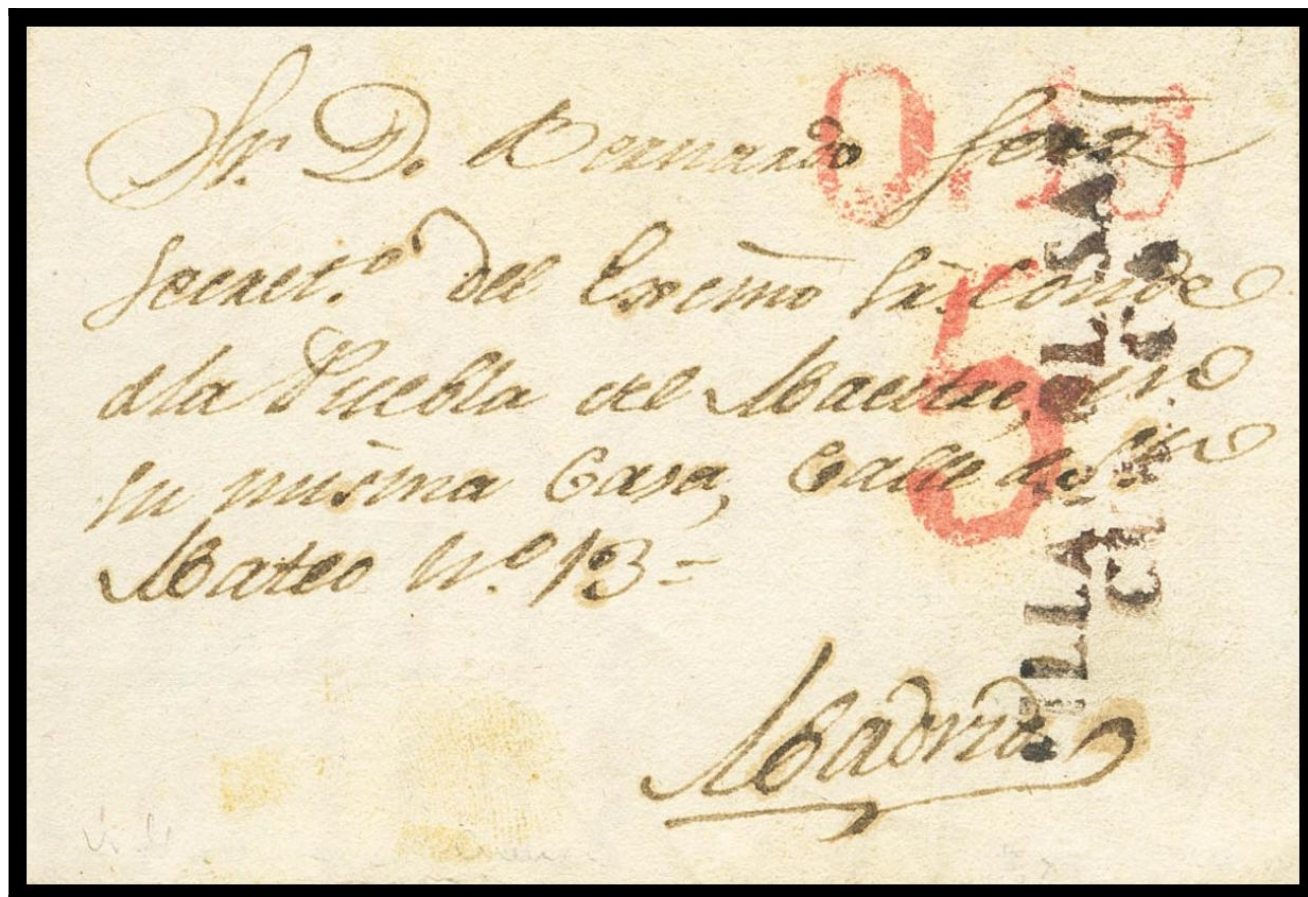 Sr. D. Bernardo
Secret.º del Excmo Sr. Conde
dla Puebla del Maestre, en
su misma Casa, Calle de Sn
Mateo Nº. 13=
Madrid
5